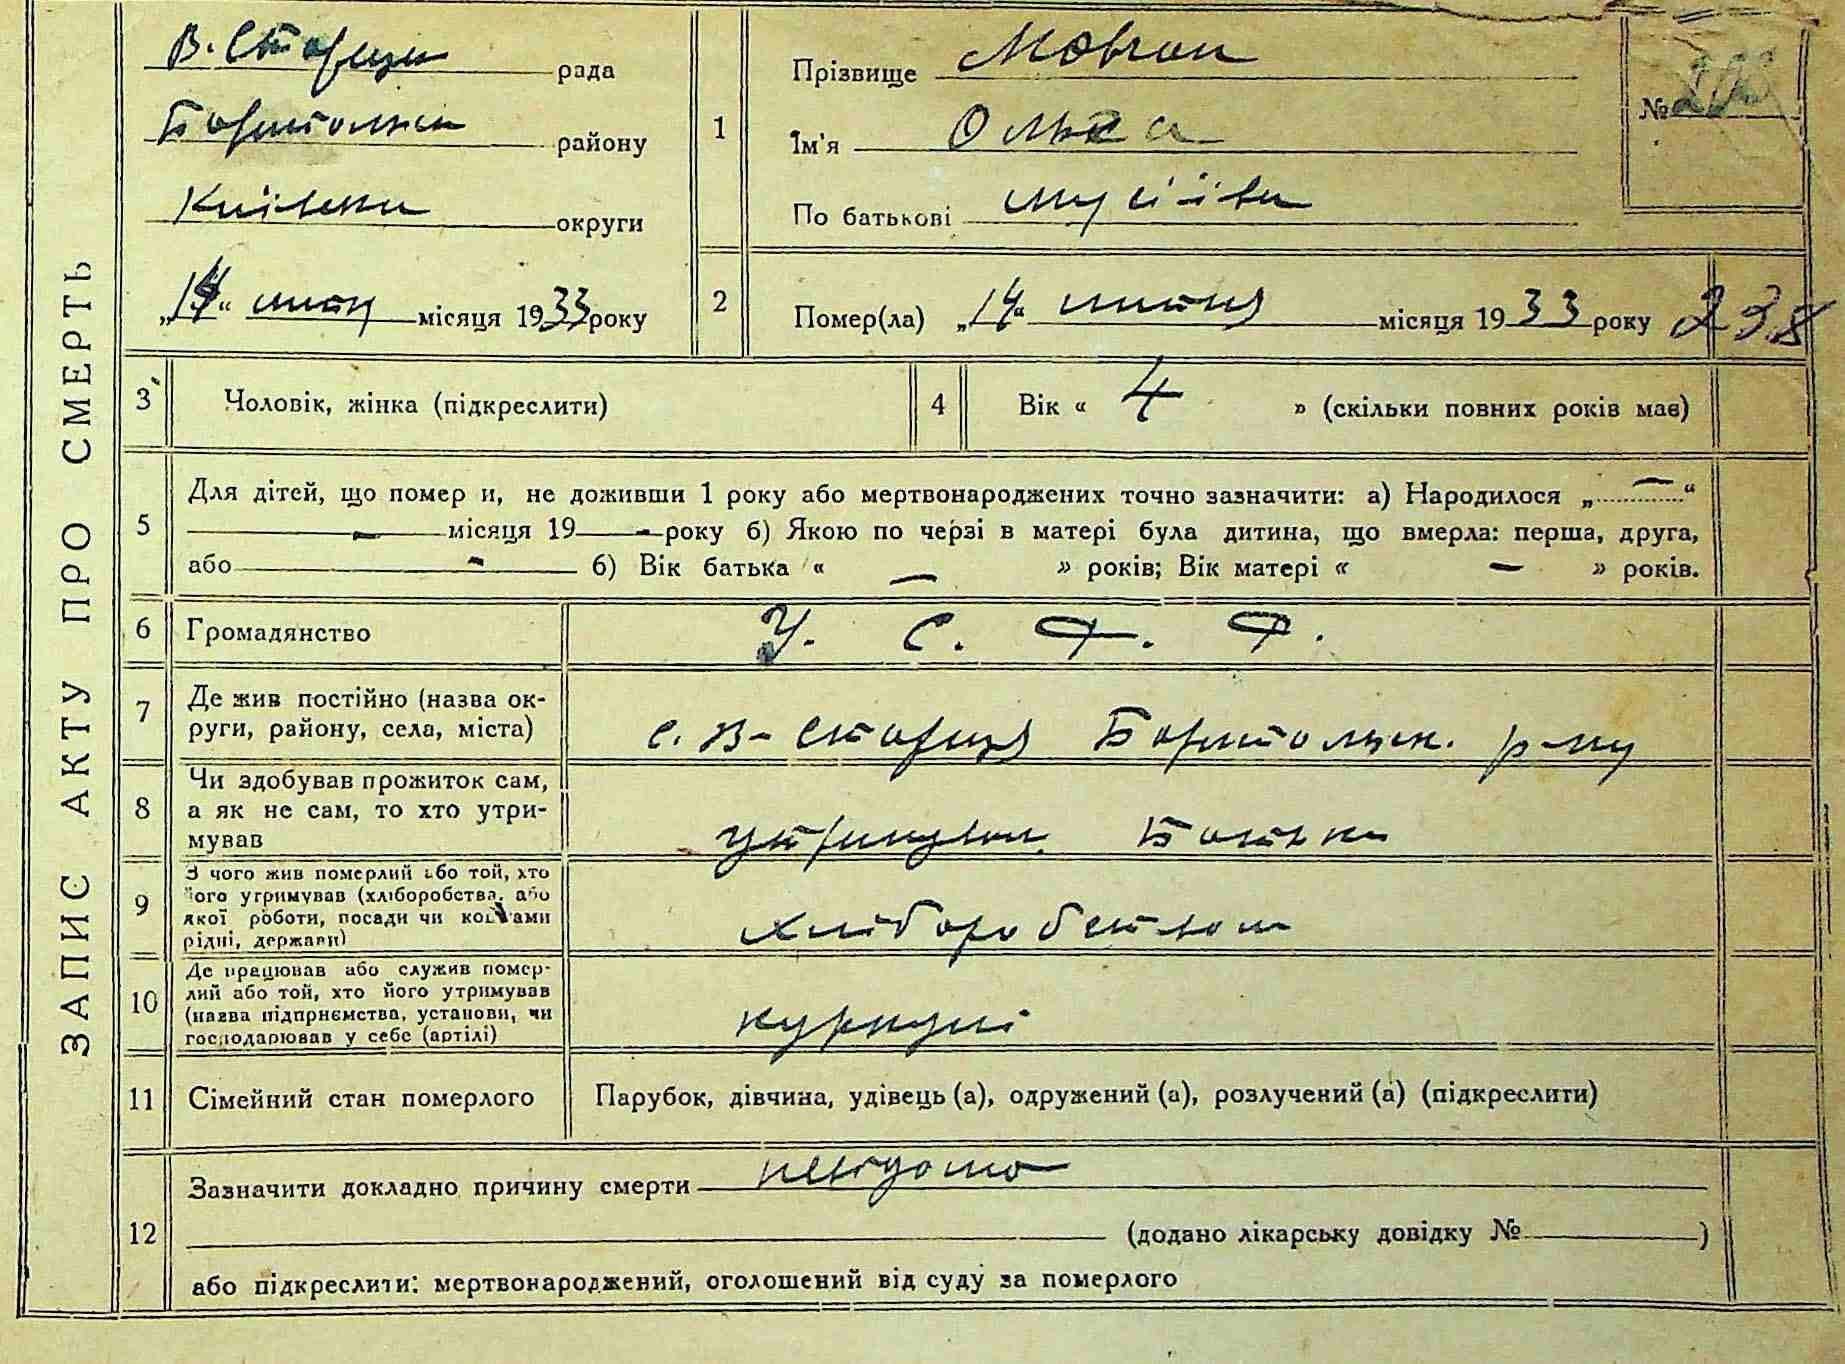 ЗАПИС АКТУ ПРО СМЕРТЬ
В. Стариця рада
району
округи
"14" місяця 1933 року
1
Прізвище Мовчан
Ім'я Ольга
По батькові Мусіївн
№
2
Помер(ла) „14“ липня місяця 1933 року
238
3
Чоловік, жінка (підкреслити)
4
Вік « 4 » (скільки повних років має)
5
Для дітей, що помер и, не доживши 1 року або мертвонароджених точно зазначити: а) Народилося „ — “
— місяця 19 - року б) Якою по черзі в матері була дитина, що вмерла: перша, друга,
або - б) Вік батька « — » років; Вік матері « — » років.
6
Громадянство
У. С. Ф. Ф.
7
Де жив постійно (назва ок-
руги, району, села, міста)
с. В-Стариця Боришпольськ. р-ну
8
Чи здобував прожиток сам,
а як не сам, то хто утри-
мував
утримував Батько
9
З чого жив померлий або той, хто
його утримував (хліборобства, або
якої роботи, посади чи коштами
рідні, держави)
хліборобством
10
Де працював або служив помер-
лий або той, хто його утримував
(назва підприємства, установи, чи
господарював у себе (артілі)
куркулі
11
Сімейний стан померлого
Парубок, дівчина, удівець (а), одружений (а), розлучений (а) (підкреслити)
12
Зазначити докладно причину смерти невідомо
(додано лікарську довідку № )
або підкреслити: мертвонароджений, оголошений від суду за померлого